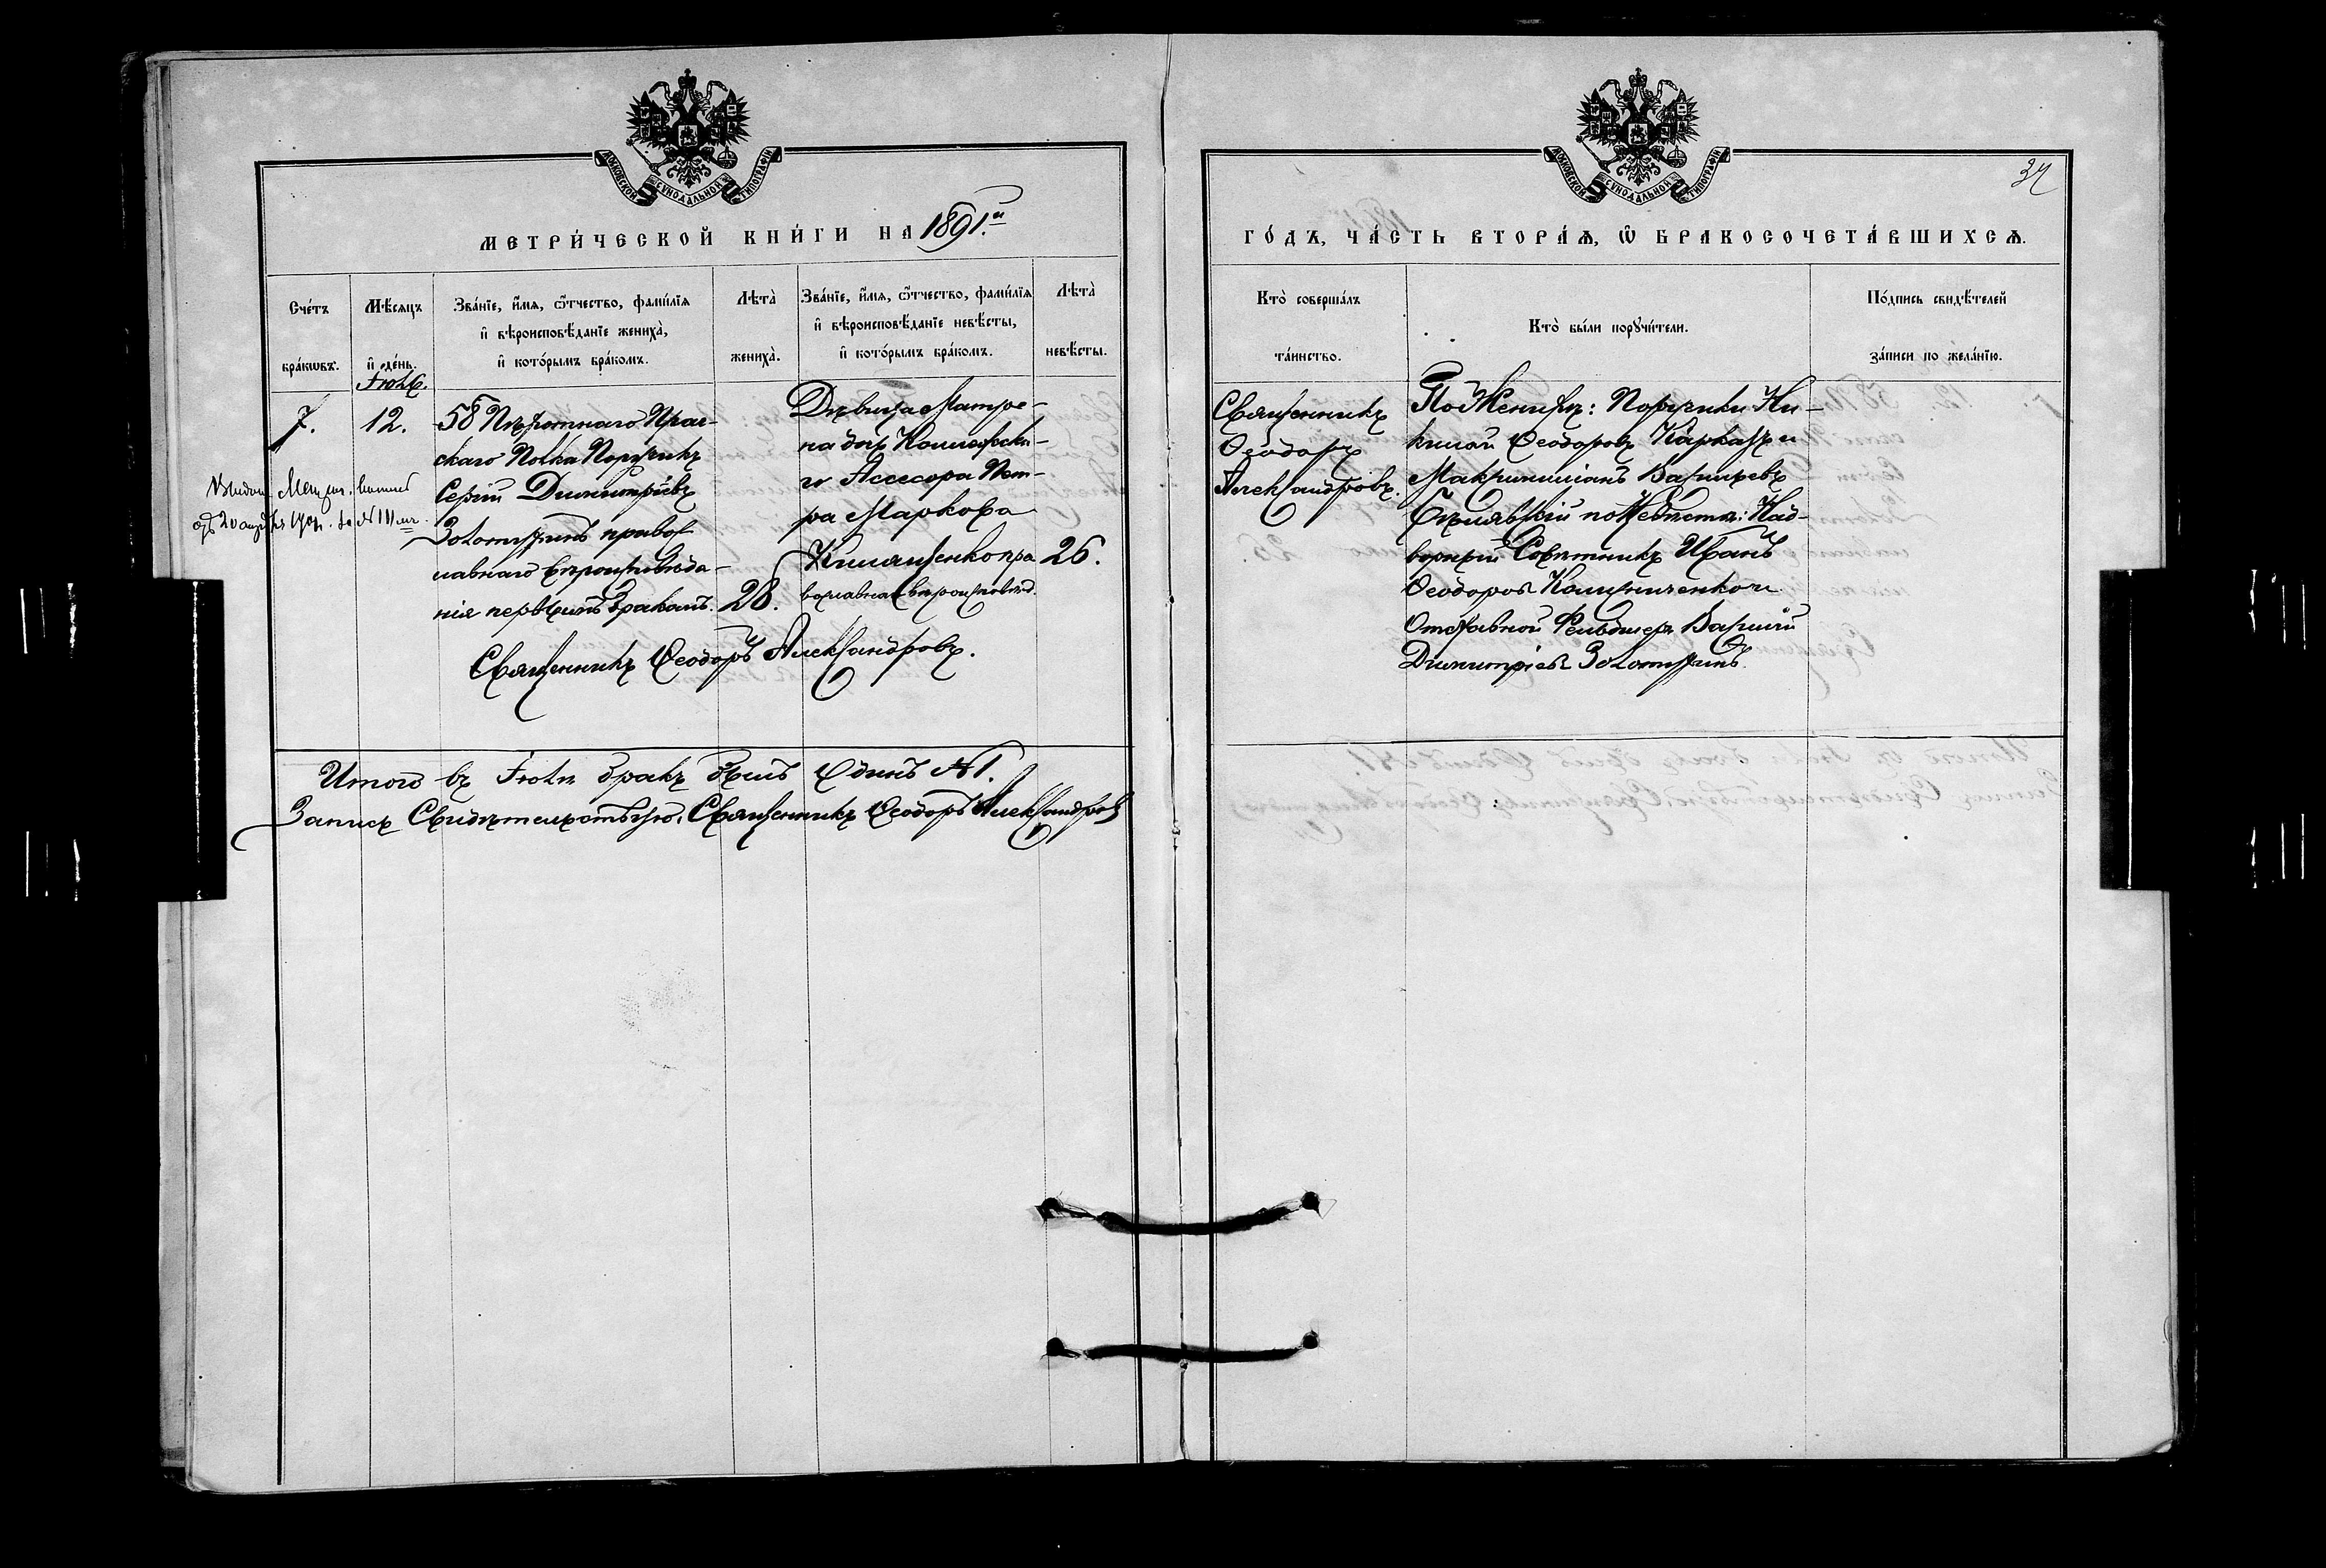 МОСКОВСКОЙ СѴНОДАЛЬНОЙ ТИПОГРАФІИ
МЕТРИ́ЧЕСКОЙ КНИ́ГИ НА 1891.й
Сче́тъ бра́кѡвъ.
Мѣ́сяцъ и҆ де́нь.
Зва́нїе, и҆́мя, ѻ҆́тчество, фами́лїя
и҆ вѣроисповѣ́данїе жениха̀,
и҆ кото́рымъ бра́комъ.
Лѣта̀ жениха̀.
Зва́нїе, и҆́мя, ѻ҆́тчество, фами́лїя
и҆ вѣроисповѣ́данїе невѣ́сты,
и҆ кото́рымъ бра́комъ.
Лѣта̀ невѣ́сты.
Іюль.
7.
12.
58 Пѣхотнаго Праг-
скаго Полка Поручикъ
Сергій Димитріевъ
Золотухинъ правос
лавнаго вѣроисповѣда-
нія первымъ бракомъ.
28.
Дѣвица Матре-
на дочь Коллежска-
го Ассесора Пет-
ра Маркова
пра
вославнаго вѣроисповѣд.
26.
Священникъ Ѳеодоръ Александровъ.
20 № 111
Итого въ Іюлѣ бракъ былъ Одинъ №1.
Запись Свидѣтельствую. Священникъ Ѳеодоръ Александровъ
МОСКОВСКОЙ СѴНОДАЛЬНОЙ ТИПОГРАФІИ
ГО́ДЪ, ЧА́СТЬ ВТОРА́Я, Ѡ҆ БРАКОСОЧЕТА́ВШИХСЯ.
Кто̀ соверша́лъ
та́инство.
Кто̀ бы́ли порꙋчи́тели.
По́дпись свидѣ́телей
за́писи по жела́нїю.
Священникъ
Ѳеодоръ
Александровъ.
По Женихѣ: Поручики Ни-
Ѳеодоровъ и
Васильевъ
по Невѣстѣ: Над-
ворный Совѣтникъ Иванъ
Ѳеодоровъ и
Отставной Фельдшеръ Василій
Димитріевъ Золотухинъ.